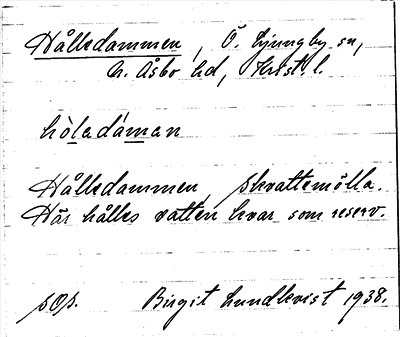 Hållsdammen, Ö. Ljungby sn,
N. Åsbo hd, Krist. l.
hòladáman
Hållsdammen, skvattemölla.
Här hålles vatten kvar som reserv.
Birgit Lundkvist 1938.